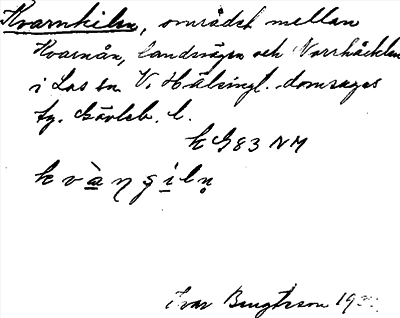 Kvarnkilen, området mellan
Kvarnån, landsvägen och Norrhäcklen
i Los sn V. Hälsingl. domsagas
tg. Gävleb. l.
k G83 NM
k v à n g i l n
Ivar Bengtsson